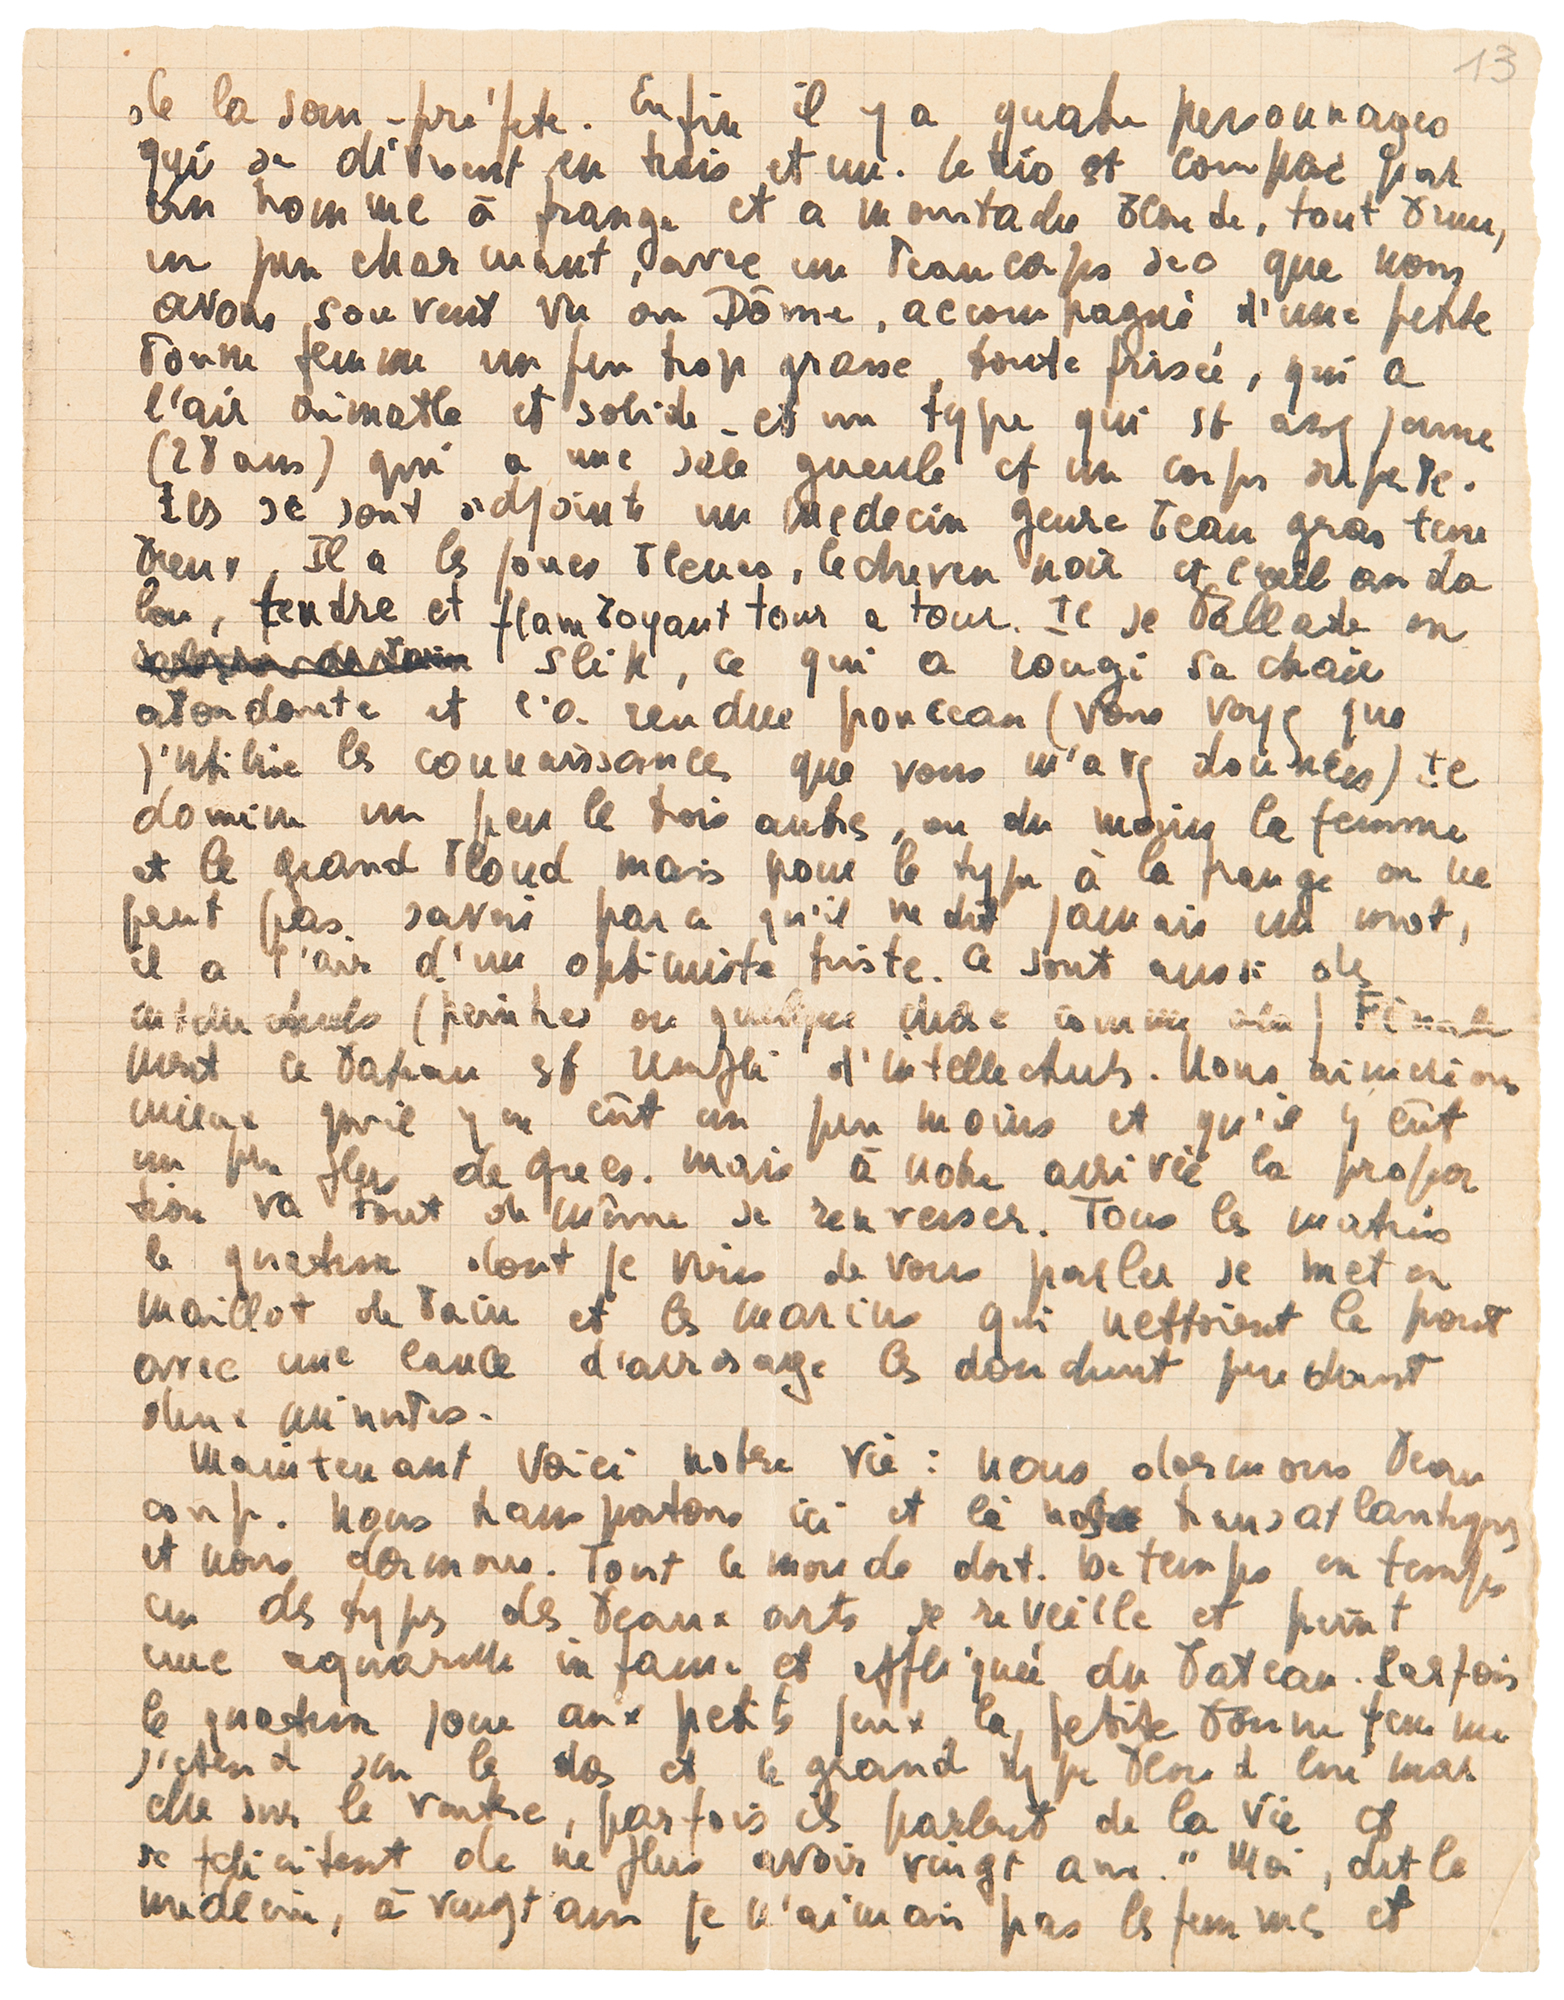 13
de la sous-préfète. Enfin il y a quatre personnages
qui se divisent en trois et un. Le trio est composé par
un homme à frange et a moustache blonde, tout brun,
un peu charmant, avec un beau corps sec que nous
avons souvent vu au Dôme, accompagné d'une petite
bonne femme un peu trop grasse, toute frisée, qui a
l'air aimable et solide - et un type qui est assez jeune
(28 ans) qui a une sale gueule et un corps superbe.
Ils se sont adjoints un médecin genre beau gras téné
breux. Il a les joues bleues, le cheveu noir et l'œil anda
lou, tendre et flamboyant tour a tour. Il se ballade en
slip, ce qui a rougi sa chair
abondante et l'a rendue ponceau (vous voyez que
j'utilise les connaissances que vous m'avez données) Il
domine un peu le trois autres, ou du moins la femme
et le grand blond mais pour le type à la frange on ne
peut pas savoir parce qu'il ne dit jamais un mot,
il a l'air d'un optimiste triste. Ce sont aussi des
intellectuels (peintres ou quelque chose comme cela) Finale
ment ce bateau est rempli d'intellectuels. Nous aimerions
mieux qu'il y en eût un peu moins et qu'il y eût
un peu plus de grecs. Mais à notre arrivée la propor
tion va tout de même se renverser. Tous les matins
le quatuor dont je viens de vous parler se met en
maillot de bain et les marins qui nettoient le pont
avec une lance d'arrosage les douchent pendant
deux minutes.
Maintenant voici notre vie : nous dormons beau
coup. Nous transportons ici et là nos transatlantiques
et nous dormons. Tout le monde dort. De temps en temps
un des types des beaux arts se réveille et peint
une aquarelle infame et appliquée du bateau. Parfois
le quatuor joue aux petits jeux la petite bonne femme
s'étend sur le dos et le grand type blond lui mar
che sur le ventre, parfois ils parlent de la vie et
se félicitent de ne plus avoir vingt ans. "Moi, dit le
médecin, à vingt ans je n'aimais pas les femmes et